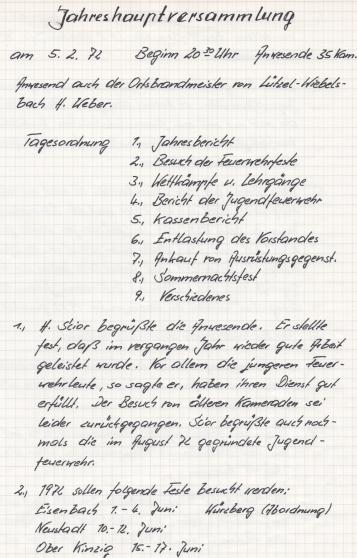 Jahreshauptversammlung
am 5. 2. 72 Beginn 20 30 Uhr Anwesende 35 Kam.
Anwesend auch der Ortsbrandmeister von Lützel-Wiebels-
bach H. Weber.
Tagesordnung 1., Jahresbericht
2., Besuch der Feuerwehrfeste
3., Wettkämpfe u. Lehrgänge
4., Bericht der Jugendfeuerwehr
5., Kassenbericht
6., Entlastung des Vorstandes
7., Ankauf von Ausrüstungsgegenst.
8., Sommernachtsfest
9., Verschiedenes
1., H. Stior begrüßte die Anwesende. Er stellte
fest, daß im vergangen Jahr wieder gute Arbeit
geleistet wurde. Vor allem die jungeren Feuer-
wehrleute, so sagte er, haben ihren Dienst gut
erfüllt. Der Besuch von älteren Kameraden sei
leider zurückgegangen. Stior begrüßte auch noch-
mals die im August 71 gegründete Jugend-
feuerwehr.
2., 1972 sollen folgende Feste besucht werden;
Eisenbach 1. - 4. Juni Würzberg (Abordnung)
Neustadt 10. - 12. Juni
Ober Kinzig 15. - 17. Juni